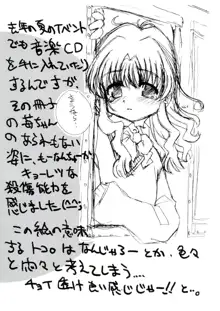 去年の夏のイベント
でも音楽CD
を手に入れていたり
するんですが
その冊子
の
ちゃん
のあられもない
姿に、もーなんだか
キョーレツな
殺傷能力を
感じました(^^;
この絵の意味
するトコロはなんじゃろーとか、色々
と考えてしまう…
チョイ透け良い感じじゃー!! と…。